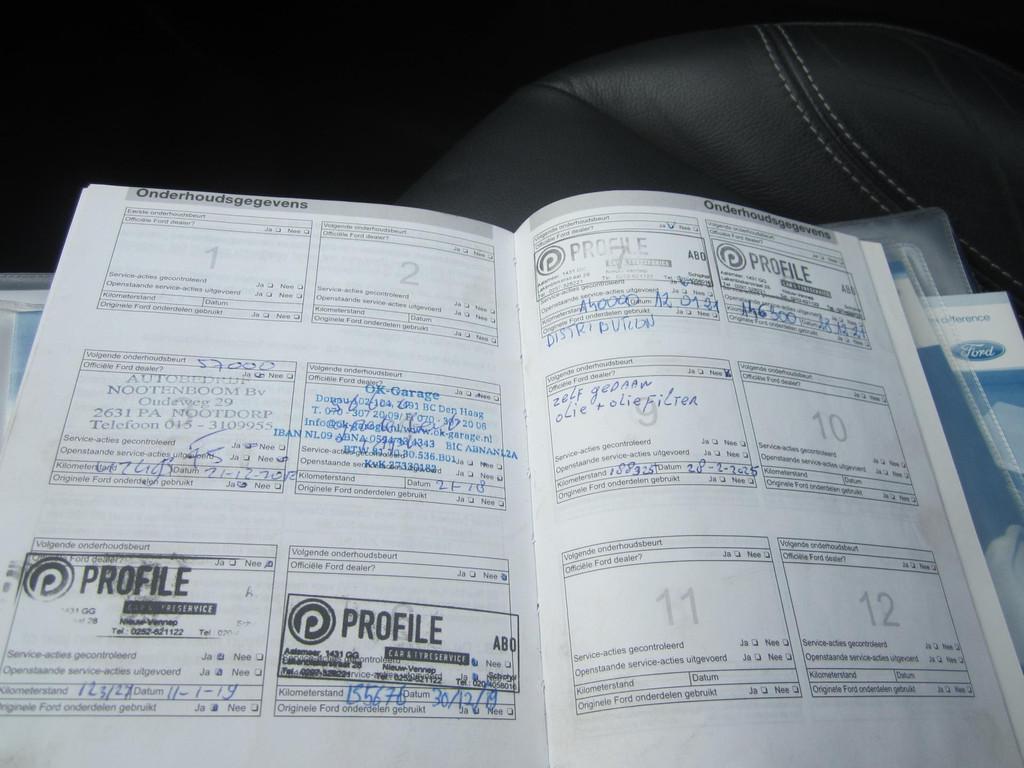 Onderhoudsgegevens
Eerste onderhoudsbeurt
Officiële Ford dealer? Ja Nee
1
Service-acties gecontroleerd Ja Nee
Openstaande service-acties uitgevoerd Ja Nee
Kilometerstand Datum
Originele Ford onderdelen gebruikt Ja Nee
Volgende onderhoudsbeurt
Officiële Ford dealer? Ja Nee
2
Service-acties gecontroleerd Ja Nee
Openstaande service-acties uitgevoerd Ja Nee
Kilometerstand Datum
Originele Ford onderdelen gebruikt Ja Nee
Volgende onderhoudsbeurt
57000
Officiële Ford dealer? Ja Nee
AUTOBEDRIJF
NOOTENBOOM Bv
Oudeweg 29
2631 PA NOOTDORP
Telefoon 015 - 3109955
Service-acties gecontroleerd Ja Nee
Openstaande service-acties uitgevoerd Ja Nee
Kilometerstand Datum 21-12-
Originele Ford onderdelen gebruikt Ja Nee
Volgende onderhoudsbeurt
Officiële Ford dealer? Ja Nee
OK-Garage
2591 BC Den Haag
Info@ok-garage.nl/www.ok-garage.nl
BIC ABNANL2A
KvK 27330182
Kilometerstand Datum
Originele Ford onderdelen gebruikt Ja Nee
Volgende onderhoudsbeurt
Officiële Ford dealer? Ja Nee
PROFILE
CAR & TYRESERVICE
1431 GG
Nieuw-Vennep
Tel.: 0252-621122
Service-acties gecontroleerd Ja Nee
Openstaande service-acties uitgevoerd Ja Nee
Kilometerstand Datum 11-1-19
Originele Ford onderdelen gebruikt Ja Nee
Volgende onderhoudsbeurt
Officiële Ford dealer? Ja Nee
PROFILE
CAR & TYRESERVICE
ABO
Aalsmeer, 1431 GG
Nieuw-Vennep
Tel.: 0252-621122
Kilometerstand 155676 Datum 30/12/19
Originele Ford onderdelen gebruikt Ja Nee
Onderhoudsgegevens
Volgende onderhoudsbeurt
Officiële Ford dealer? Ja Nee
PROFILE
CAR & TYRESERVICE
ABO
Openstaande service-acties uitgevoerd
Kilometerstand Datum 12 01 21
Originele Ford onderdelen gebruikt Ja Nee
DISTRIBUTION
Volgende onderhoudsbeurt
Officiële Ford dealer? Ja Nee
PROFILE
CAR & TYRESERVICE
ABO
Aalsmeer, 1431 GG
146500
Volgende onderhoudsbeurt
Officiële Ford dealer? Ja Nee
zelf gedaan
olie + oliefilter
9
Service-acties gecontroleerd Ja Nee
Openstaande service-acties uitgevoerd Ja Nee
Kilometerstand 188925 Datum 28-2-2025
Originele Ford onderdelen gebruikt Ja Nee
Volgende onderhoudsbeurt
Officiële Ford dealer? Ja Nee
10
Service-acties gecontroleerd Ja Nee
Openstaande service-acties uitgevoerd Ja Nee
Kilometerstand Datum
Originele Ford onderdelen gebruikt Ja Nee
Volgende onderhoudsbeurt
Officiële Ford dealer? Ja Nee
11
Service-acties gecontroleerd Ja Nee
Openstaande service-acties uitgevoerd Ja Nee
Kilometerstand Datum
Originele Ford onderdelen gebruikt Ja Nee
Volgende onderhoudsbeurt
Officiële Ford dealer? Ja Nee
12
Service-acties gecontroleerd Ja Nee
Openstaande service-acties uitgevoerd Ja Nee
Kilometerstand Datum
Originele Ford onderdelen gebruikt Ja Nee
difference
Ford